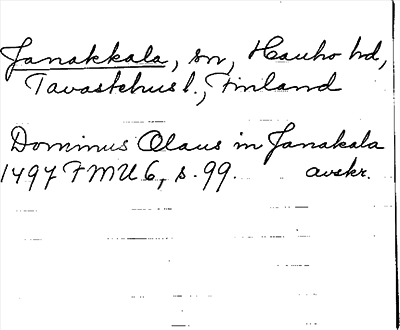 Janakkala, sn, Hauho hd,
Tavastehus l., Finland
Dominus Olaus in Janakala
1497 FMU 6, s. 99. avskr.